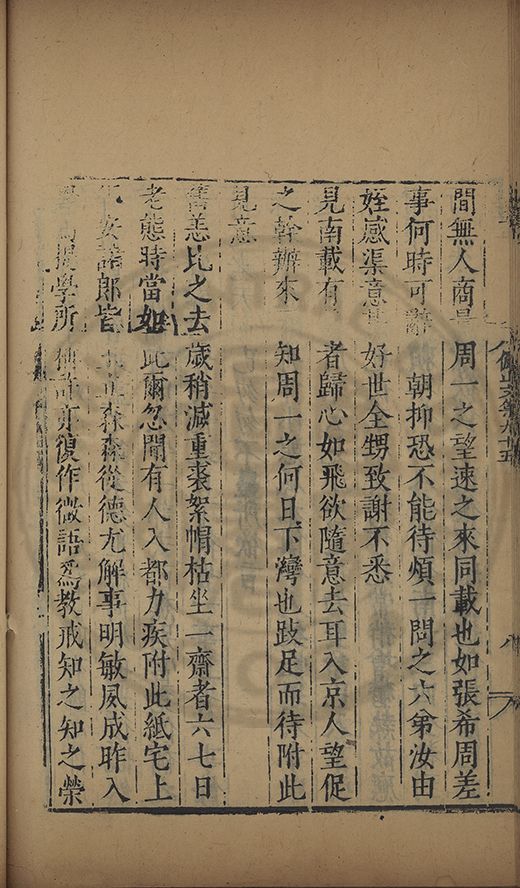 間無人商 周一之望速之來同載也如張希周差
事何時可辭 朝抑恐不能待煩一問之六第汝由
姪感渠意 好世全甥致謝不悉
見南載有 者歸心如飛欲隨意去耳入京人望促
之幹辦來 知周一之何日下灣也跂足而待附此
見意
舊恙比之去歲稍減重裘絮帽枯坐一齋者六七日
老態時當如此爾忽聞有人入都力疾附此紙宅上
安諸郎皆 森森從德尤解事明敏夙成昨入
提學所 許亦復作微語爲教戒知之知之榮
八